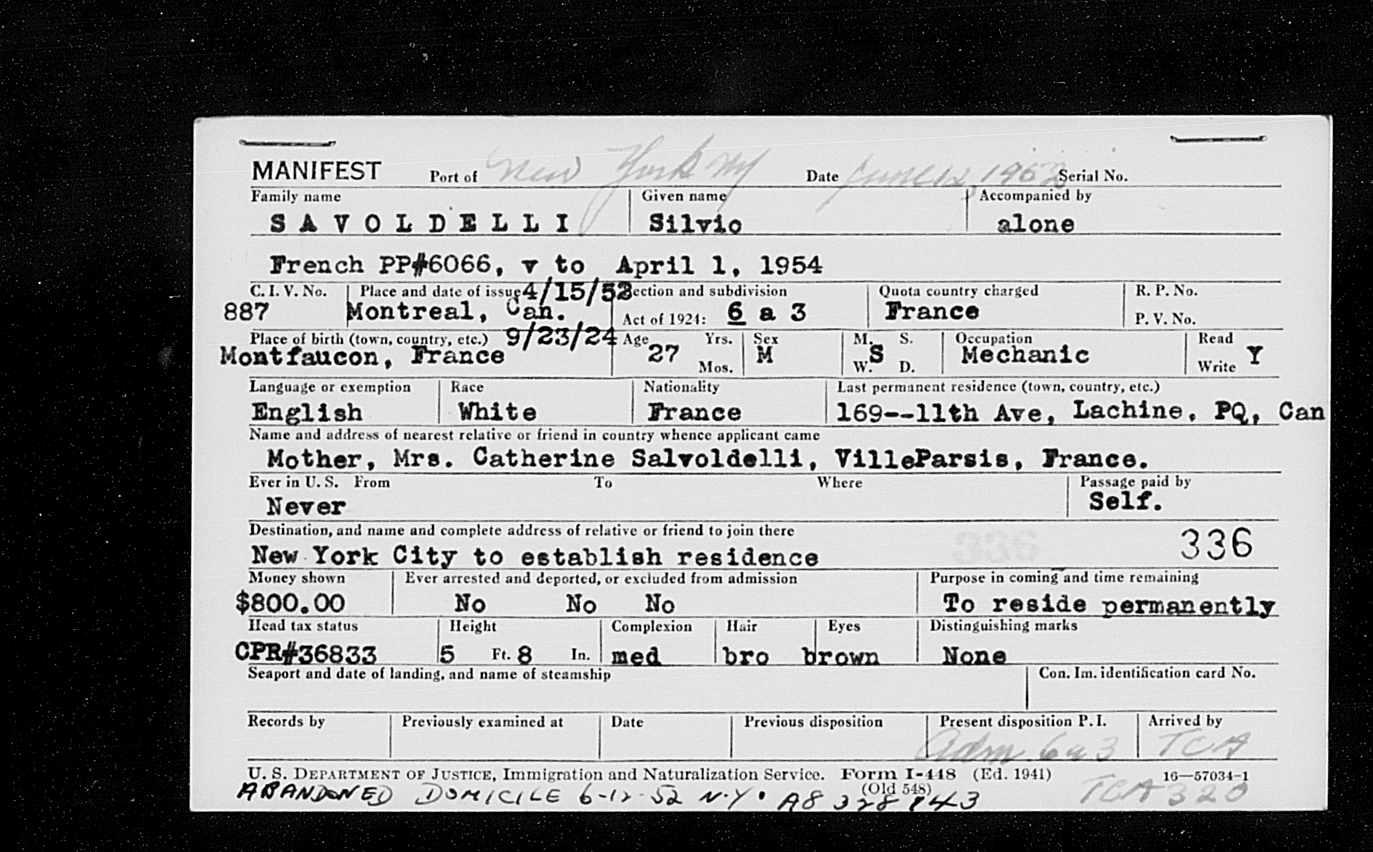 MANIFEST Port of New York NY Date June 12, 1952 Serial No.
Family name Given name Accompanied by
SAVOLDELLI Silvio alone
French PP#6066, v to April 1, 1954
C. I. V. No. Place and date of issue 4/15/52 Section and subdivision Quota country charged R. P. No.
887 Montreal, Can. Act of 1924: 6 a 3 France P. V. No.
Place of birth (town, country, etc.) 9/23/24 Age Yrs. Sex M. S. Occupation Read
Montfaucon, France 27 Mos. M W. S D. Mechanic Write Y
Language or exemption Race Nationality Last permanent residence (town, country, etc.)
English White France 169--11th Ave, Lachine, PQ, Can
Name and address of nearest relative or friend in country whence applicant came
Mother, Mrs. Catherine Salvoldelli, VilleParsis, France.
Ever in U. S. From To Where Passage paid by
Never Self.
Destination, and name and complete address of relative or friend to join there
New York City to establish residence 336 336
Money shown Ever arrested and deported, or excluded from admission Purpose in coming and time remaining
$800.00 No No No To reside permanently
Head tax status Height Complexion Hair Eyes Distinguishing marks
CPR#36833 5 Ft. 8 In. med bro brown None
Seaport and date of landing, and name of steamship Con. Im. identification card No.
Records by Previously examined at Date Previous disposition Present disposition P. I. Arrived by
Adm. 6a3 TCA
U. S. DEPARTMENT OF JUSTICE, Immigration and Naturalization Service. Form I-448 (Ed. 1941) 16—57034-1
(Old 548)
ABANDONED DOMICILE 6-12-52 N.Y. TCA 320